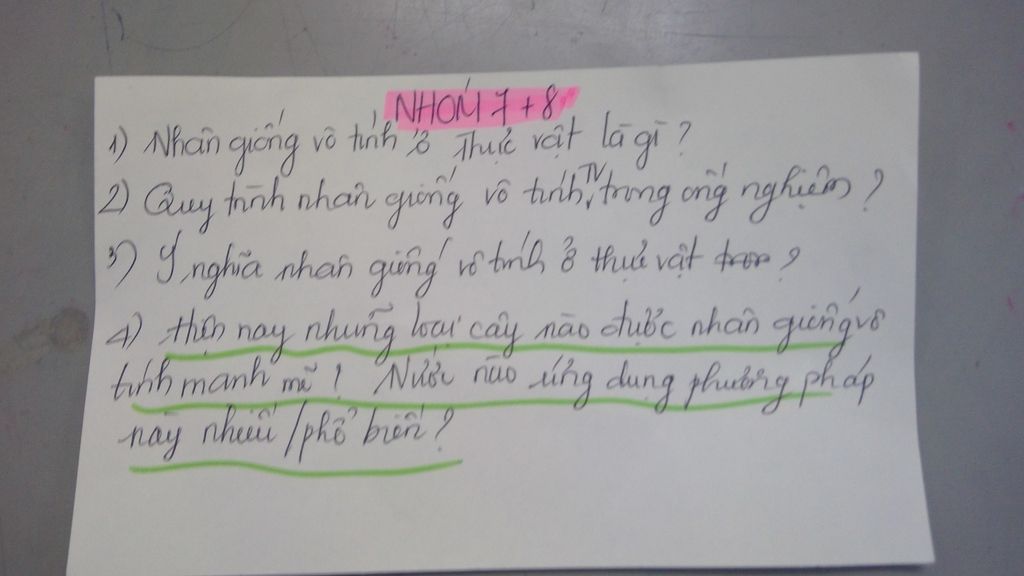 NHÓM 7 + 8
1) Nhân giống vô tính ở Thực vật là gì ?
2) Quy trình nhân giống vô tính TV trong ống nghiệm ?
3) Ý nghĩa nhân giống vô tính ở thực vật ?
4) Hiện nay những loại cây nào được nhân giống vô
tính mạnh mẽ ! Nước nào ứng dụng phương pháp
này nhiều / phổ biến ?